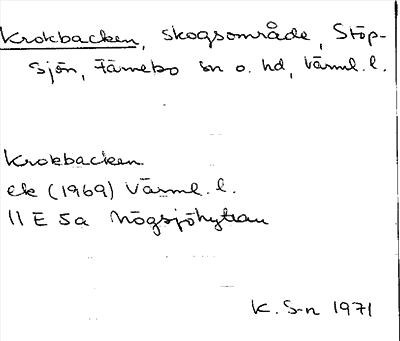 Krokbacken, skogsområde, Stöp-
sjön, Färnebo sn o. hd, Värml. l.
Krokbacken
ek (1969) Värml. l.
11 E 5a Högsjöhyttan
K. S-n 1971